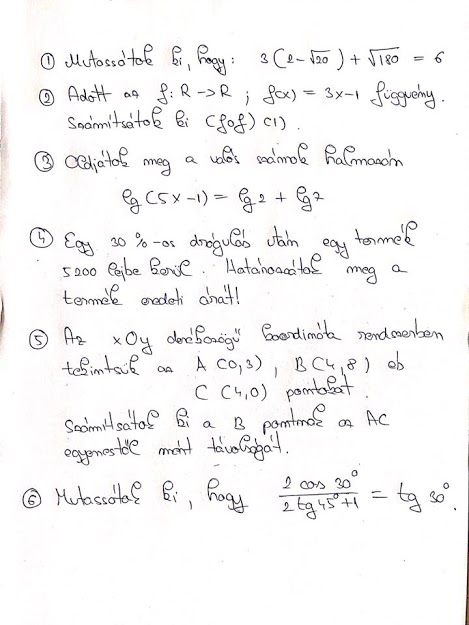 ① Mutassátok ki, hogy: 3(2-√20) + √180 = 6
② Adott az f: R→R ; f(x) = 3x-1 függvény.
Számítsátok ki (fof)(1).
③ Oldjátok meg a valós számok halmazán
lg(5x-1) = lg2 + lg7
④ Egy 30 %-os drágulás után egy termék
5200 lejbe kerül. Határozzátok meg a
termék eredeti árát!
⑤ Az xOy derékszögű koordináta rendszerben
tekintsük az A(0,3), B(4,8) és
C(4,0) pontokat.
Számítsátok ki a B pontnak az AC
egyenestől mért távolságát.
⑥ Mutassátok ki, hogy 2 cos 30° / 2 tg 45° + 1 = tg 30°.